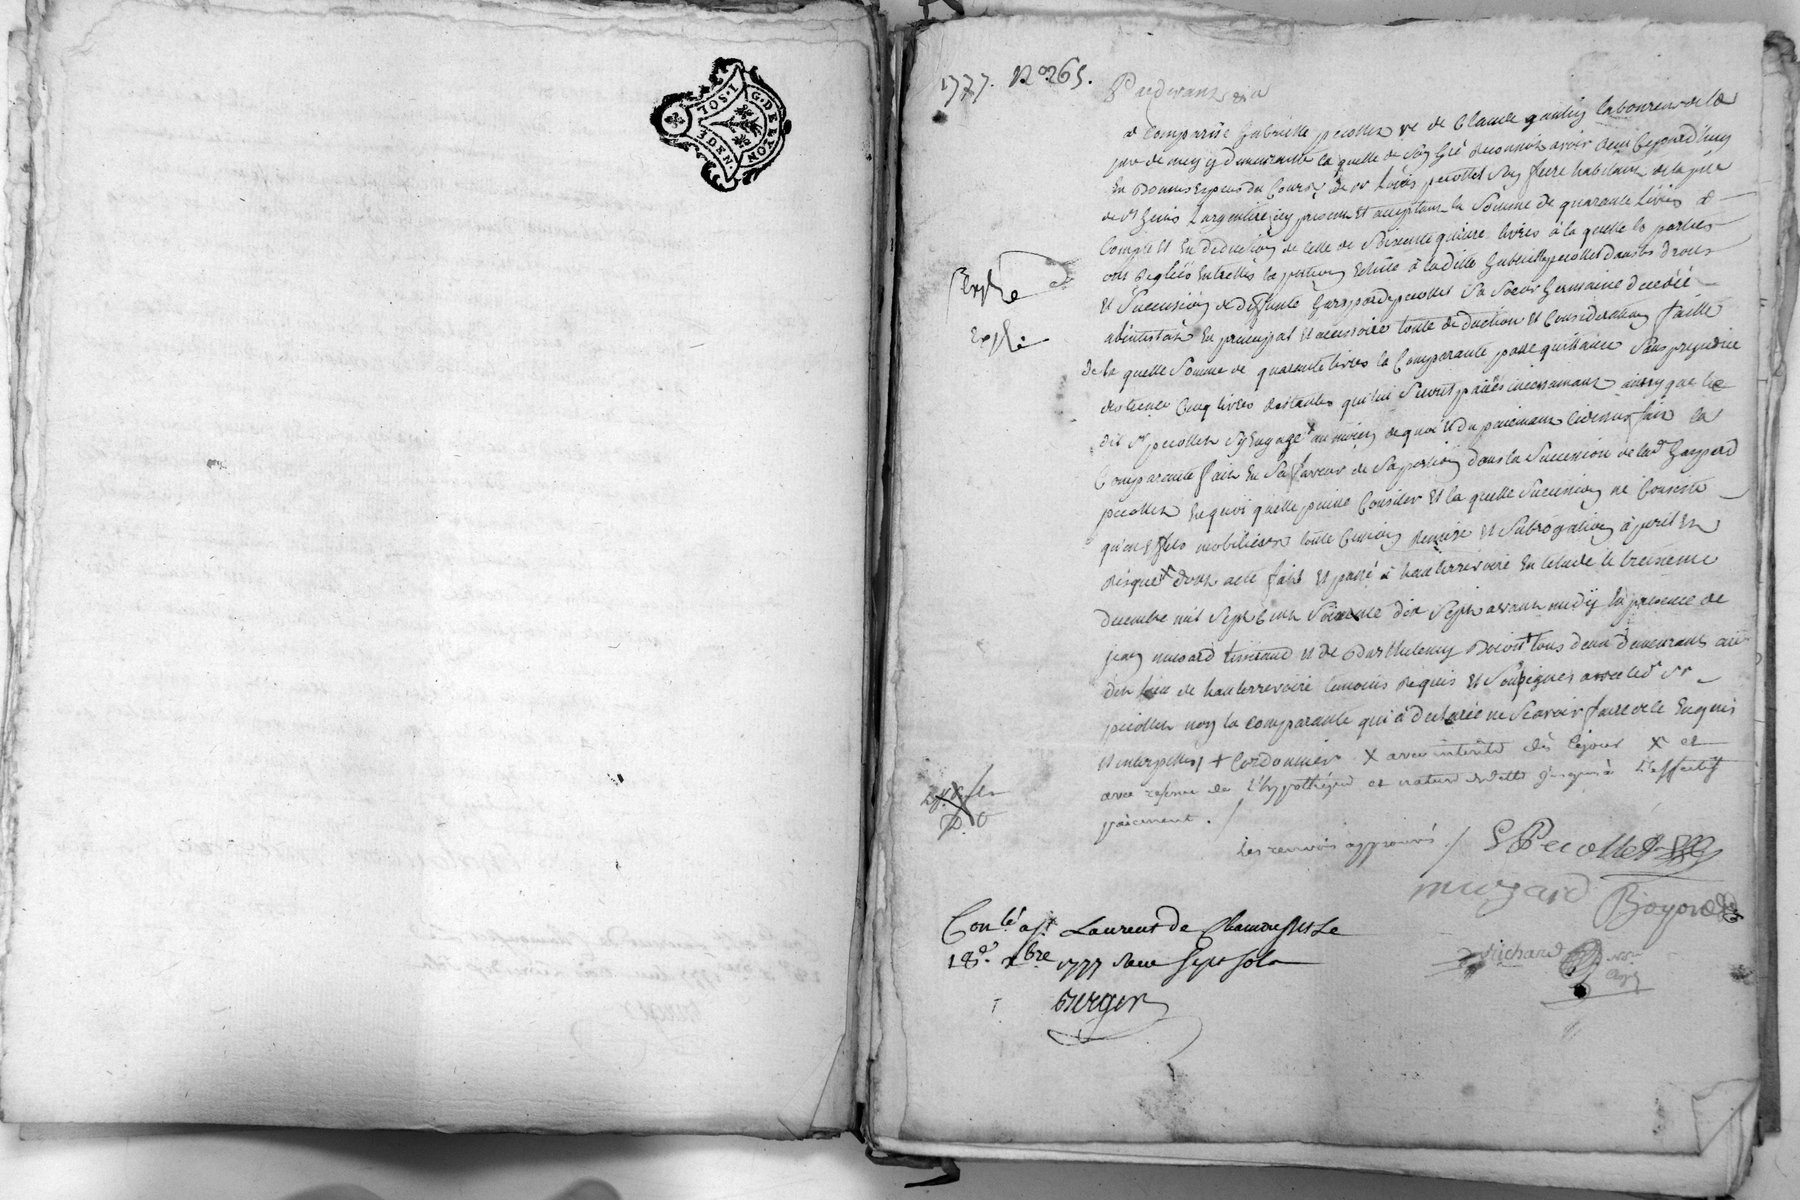 G. DE LYON
1. SOL
4 DEN.
1777. No 265.
Pardevant &a
a Comparüe Gabrielle pecollet ve de Claude gaulin laboureur de la
psse de mesy y demeurante la quelle de son Gré reconnoit avoir reçu ce jourd'huy
En bonnes Especes du Cours de sr Louis pecollet son frere habitant de la psse
de st Genis L'argentiere icy present Et acceptant la Somme de quarante livres à
Compte Et En deduction de celle de Soixante quinze livres à la quelle les parties
ont Reglées Entrelles la portion Echüe à la ditte Gabrielle pecollet dans les droits
Et Succession de deffunte pecollet Sa Sœur Germaine decedée
abintestat En principal Et accessoire toute deduction Et Consideration faitte
de la quelle Somme de quarante livres la Comparante passe quittance Sans prejudice
des trente Cinq livres restantes qui lui Seront païées incessamment ainsy que le
dit sr pecollet S'y Engage au moien de quoi Et du paiement cidessus fait la
Comparante fait En Sa faveur de Sa portion dans la Succession de lad.
pecollet En quoi quelle puisse Consister Et la quelle Succession ne Consiste
qu'en Effets mobiliers toute Cession Remise Et Subrogation à peril Et
risque dont acte fait Et passé à hauterrivoire En Etude le treizieme
decembre mil Sept Cent Soixante dix Sept avant midy En presence de
jean muzard tisserand Et de Barthelemy tous deux demeurants au
dit lieu de hauterrivoire temoins Requis Et Soussignés avec led. sr
pecollet non la comparante qui à declarée ne Scavoir faire de ce Enquis
Et interpellés + Cordonnier X avec interêts dès Cejour X et
avec reserve de L'hypothéque et nature de dette jusqu'à L'effectif
paiement . /
Les renvois approuvés . /
Pecollet
muzard
Richard
Con.lé a St Laurent de Chamousset Le
18e. xbre 1777 Reçu Sept Sols